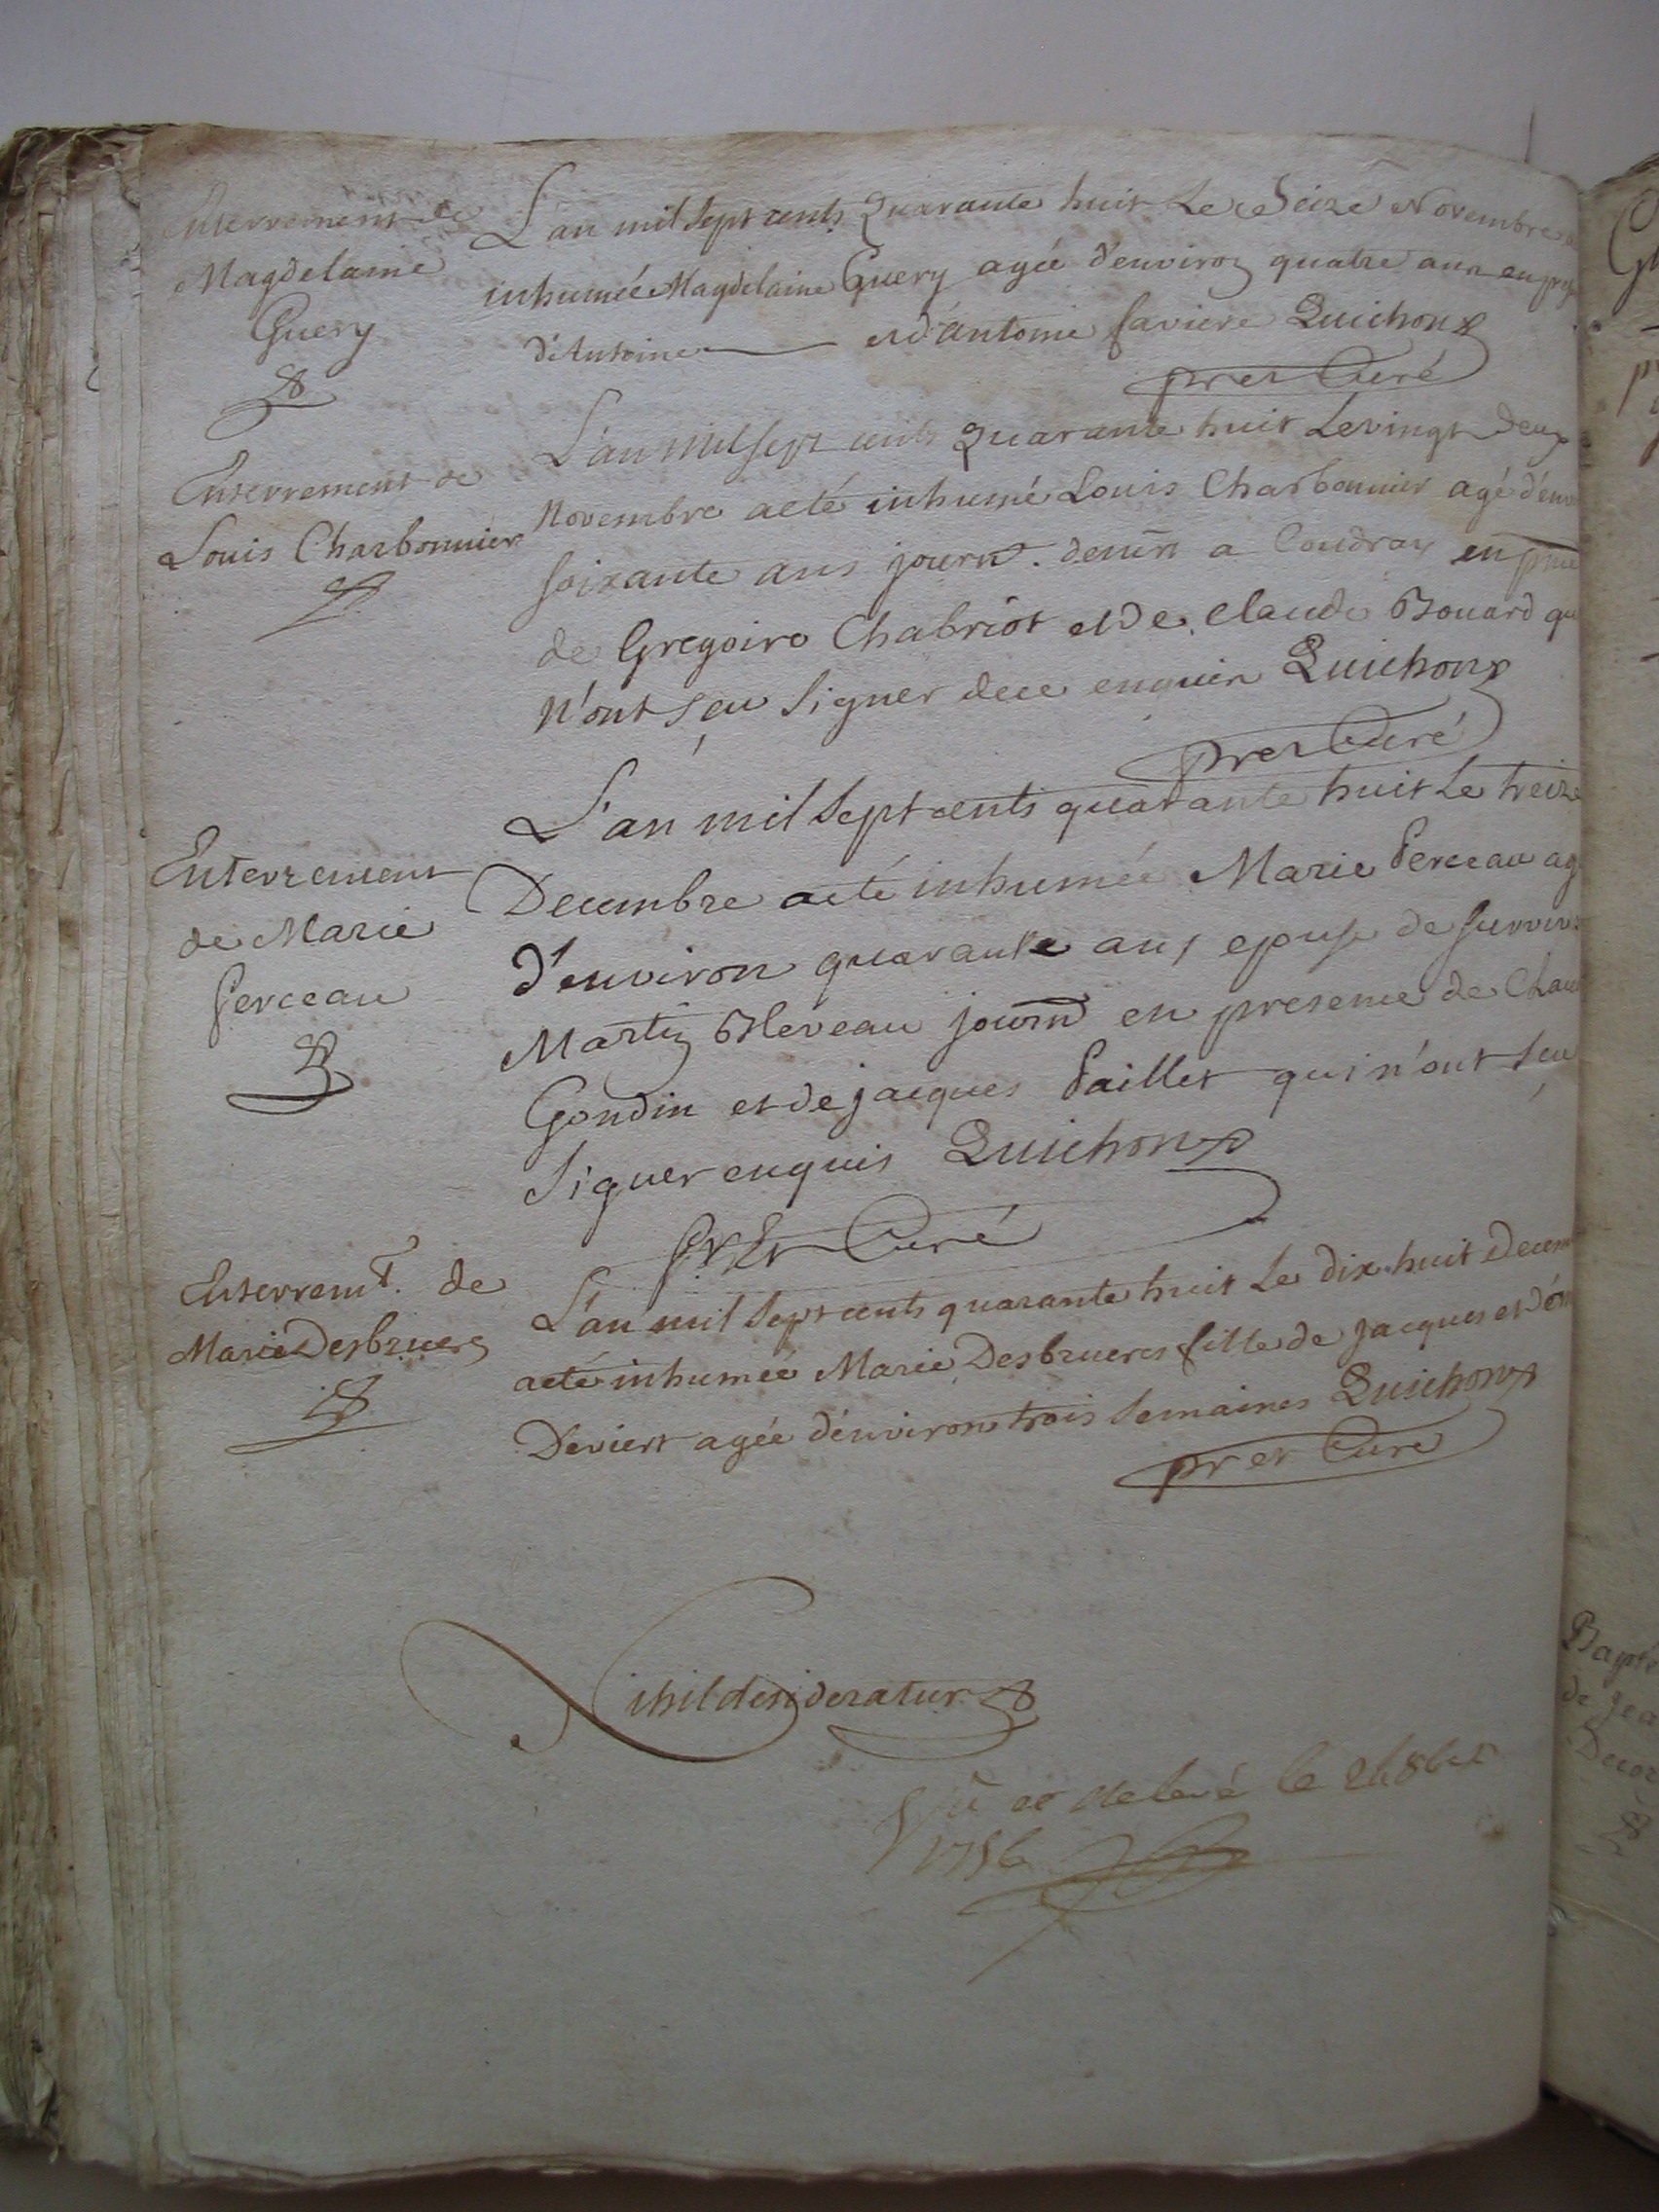 Enterrement de
Magdelaine
Guery
L'an mil sept cents Quarante huit Le Seize Novembre a
inhumée Magdelaine Guery agée d'environ quatre ans en pres
d'Antoine et d'Antoine faviere Quichon
pret Curé
Enterrement de
Louis Charbonnier
L'an mil sept cents Quarante huit Le vingt deux
Novembre a eté inhumé Louis Charbonnier agé d'env
soixante ans journ. demn a Coudray en pnce
de Gregoire Chabriot et De Claude Bouard qui
N'ont sçu signer de ce enquis Quichon
pretr Curé
Enterrement
de Marie
Perceau
L'an mil sept cents quarante huit Le treize
Decembre a eté inhumée Marie Perceau ag
D'environ quarante ans epouse de survi
Martin Bleveau journ en presence de Chau
Gondin et de jacques Paillet qui n'ont sçu
signer enquis Quichon
pretr Curé
Enterremt. de
Marie Desbrueres
L'an mil sept cents quarante huit Le dix huit Decem
a eté inhumée Marie Desbrueres fille de Jacques et d'
Deviert agée d'environ trois semaines Quichon
pretr Curé
Nihil desideratur
Vu et Relevé le 8bre
1756
Bapte
de Jea
Decor